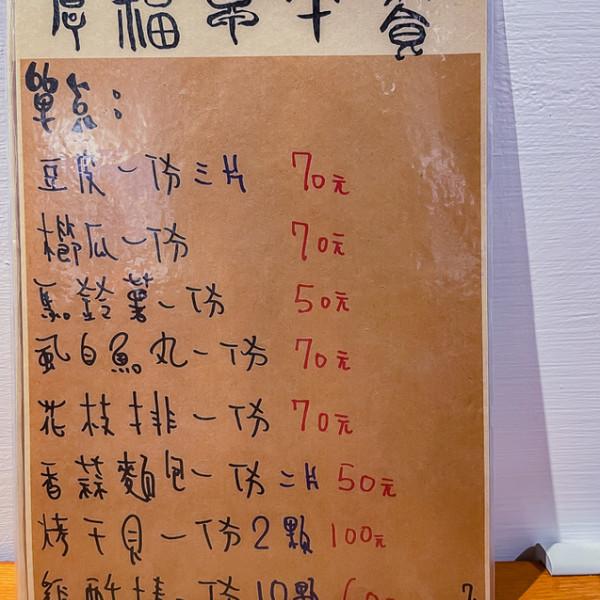 厚福早午餐
單點：
豆皮一份三片 70元
櫛瓜一份 70元
馬鈴薯一份 50元
虱目魚丸一份 70元
花枝排一份 70元
香蒜麵包一份二片 50元
烤干貝一份2顆 100元
雞酥捲一份10顆 60元